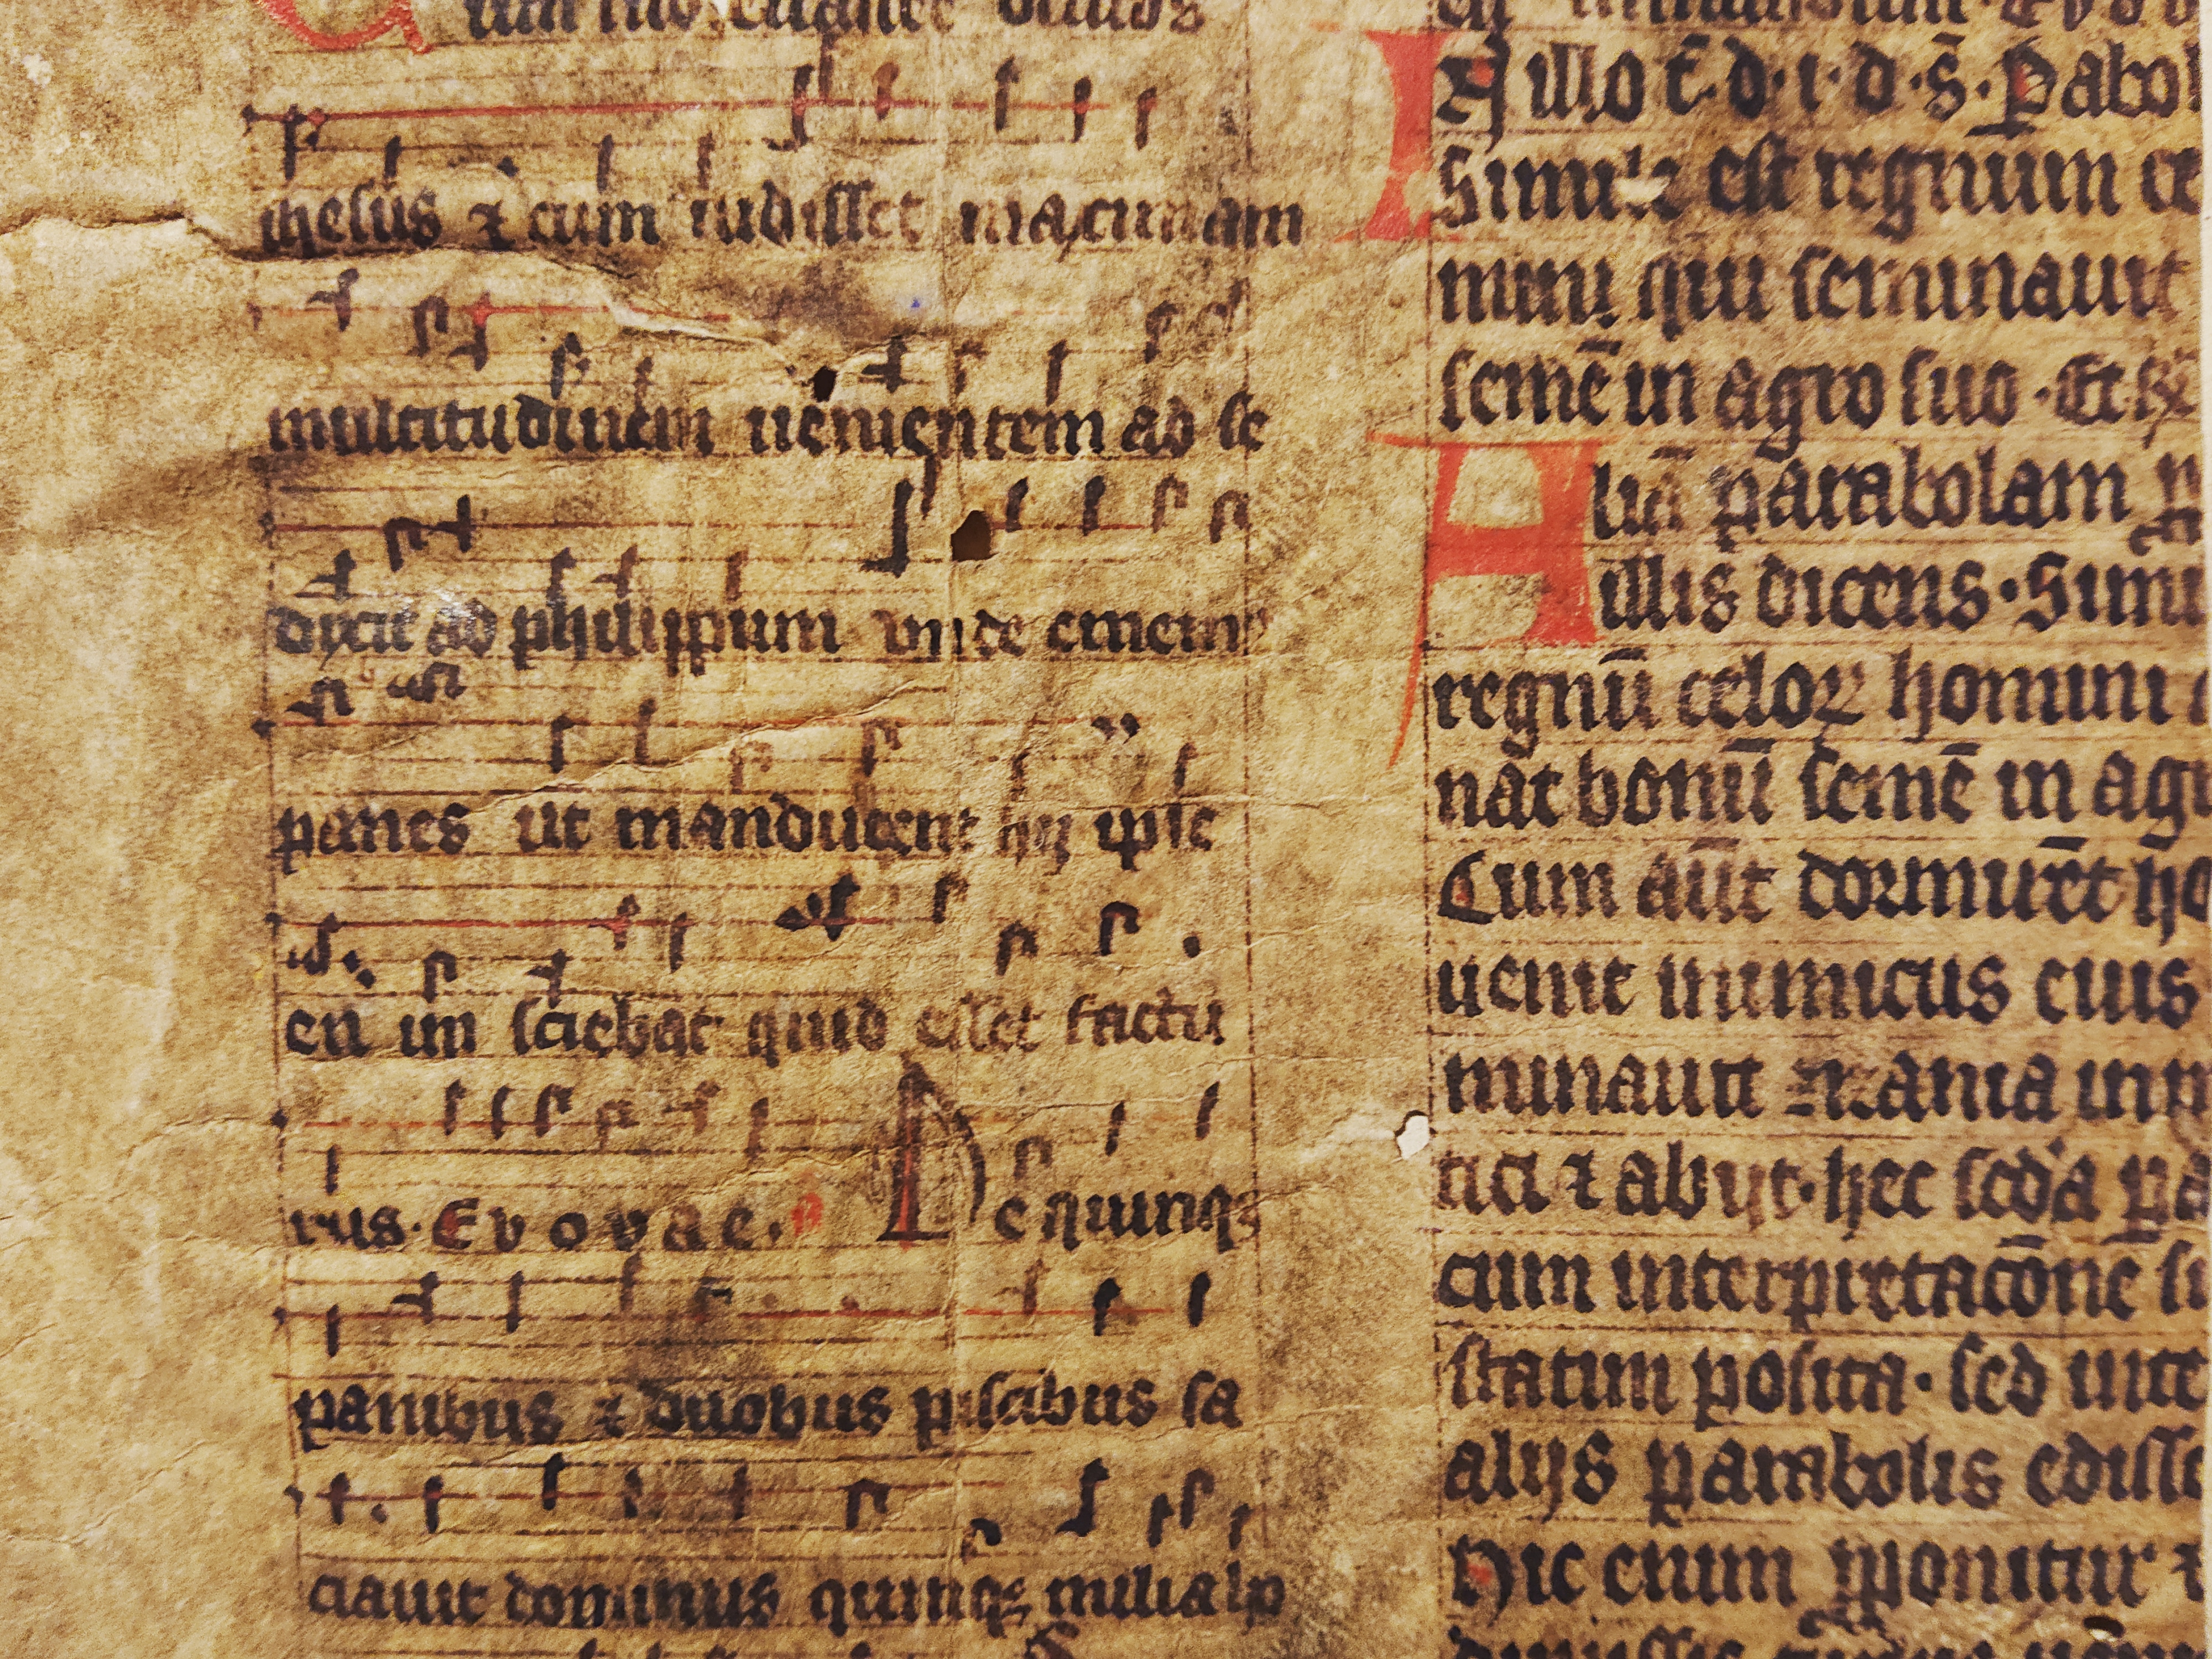 ihesus ⁊ cum uidisset maximam
multitudinem uenientem ad se
dixit ad philippum vnde ememꝰ
panes ut manducent hij ipse
en im sciebat quid esset factu
rus. Evovae. De quinqꝫ
panibus ⁊ duobus piscibus sa
ciauit dominus quinqꝫ milia
In illo t̄. d. i. d. s̄. Parabol
Simile est regnum ce
mini qui seminauit
semē in agro suo. Et
Aliā parabolam p
illis dicens. Simi
regnū celoꝝ homini
nat bonū semē in agr
Cum aūt dormirēt ho
uenit inimicus eius
minauit zizania in
tici ⁊ abijt. hec scd'a pa
cum interpretacōne si
statim posita. sed inte
alijs parabolis edisse
Hic enim ponitur